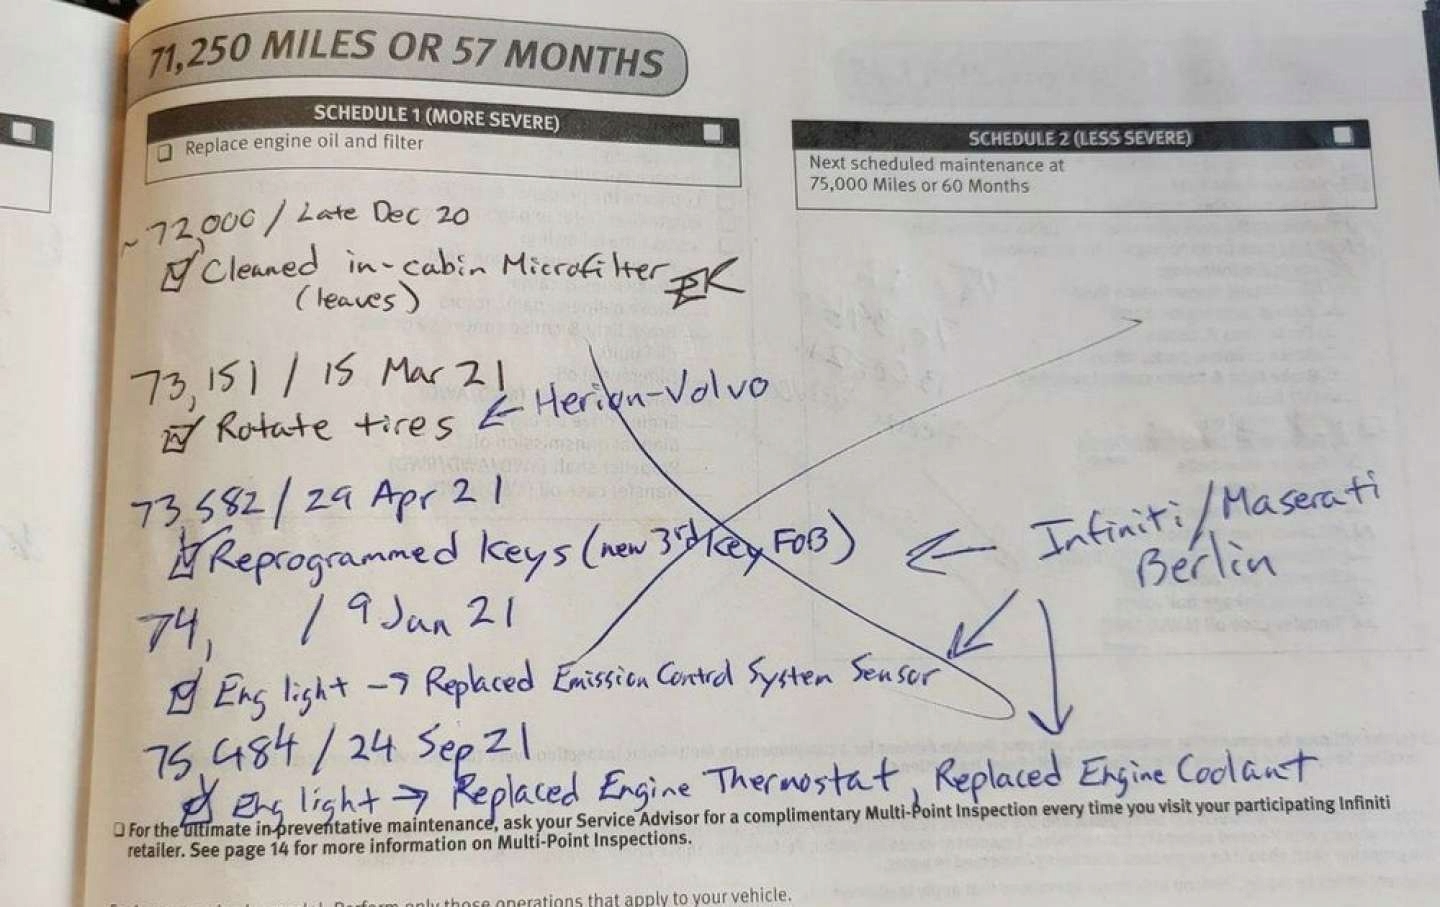 71,250 MILES OR 57 MONTHS
SCHEDULE 1 (MORE SEVERE)
Replace engine oil and filter
SCHEDULE 2 (LESS SEVERE)
Next scheduled maintenance at
75,000 Miles or 60 Months
~72,000 / Late Dec 20
Cleaned in-cabin Microfilter EK
(leaves)
73,151 / 15 Mar 21
Rotate tires ← Herion-Volvo
73,582 / 29 Apr 21
Reprogrammed keys (new 3rd key FOB) ← Infiniti/Maserati
Berlin
74, / 9 Jun 21
Eng light → Replaced Emission Control System Sensor
75,484 / 24 Sep 21
Eng light → Replaced Engine Thermostat, Replaced Engine Coolant
For the ultimate in preventative maintenance, ask your Service Advisor for a complimentary Multi-Point Inspection every time you visit your participating Infiniti
retailer. See page 14 for more information on Multi-Point Inspections.
Perform only those operations that apply to your vehicle.